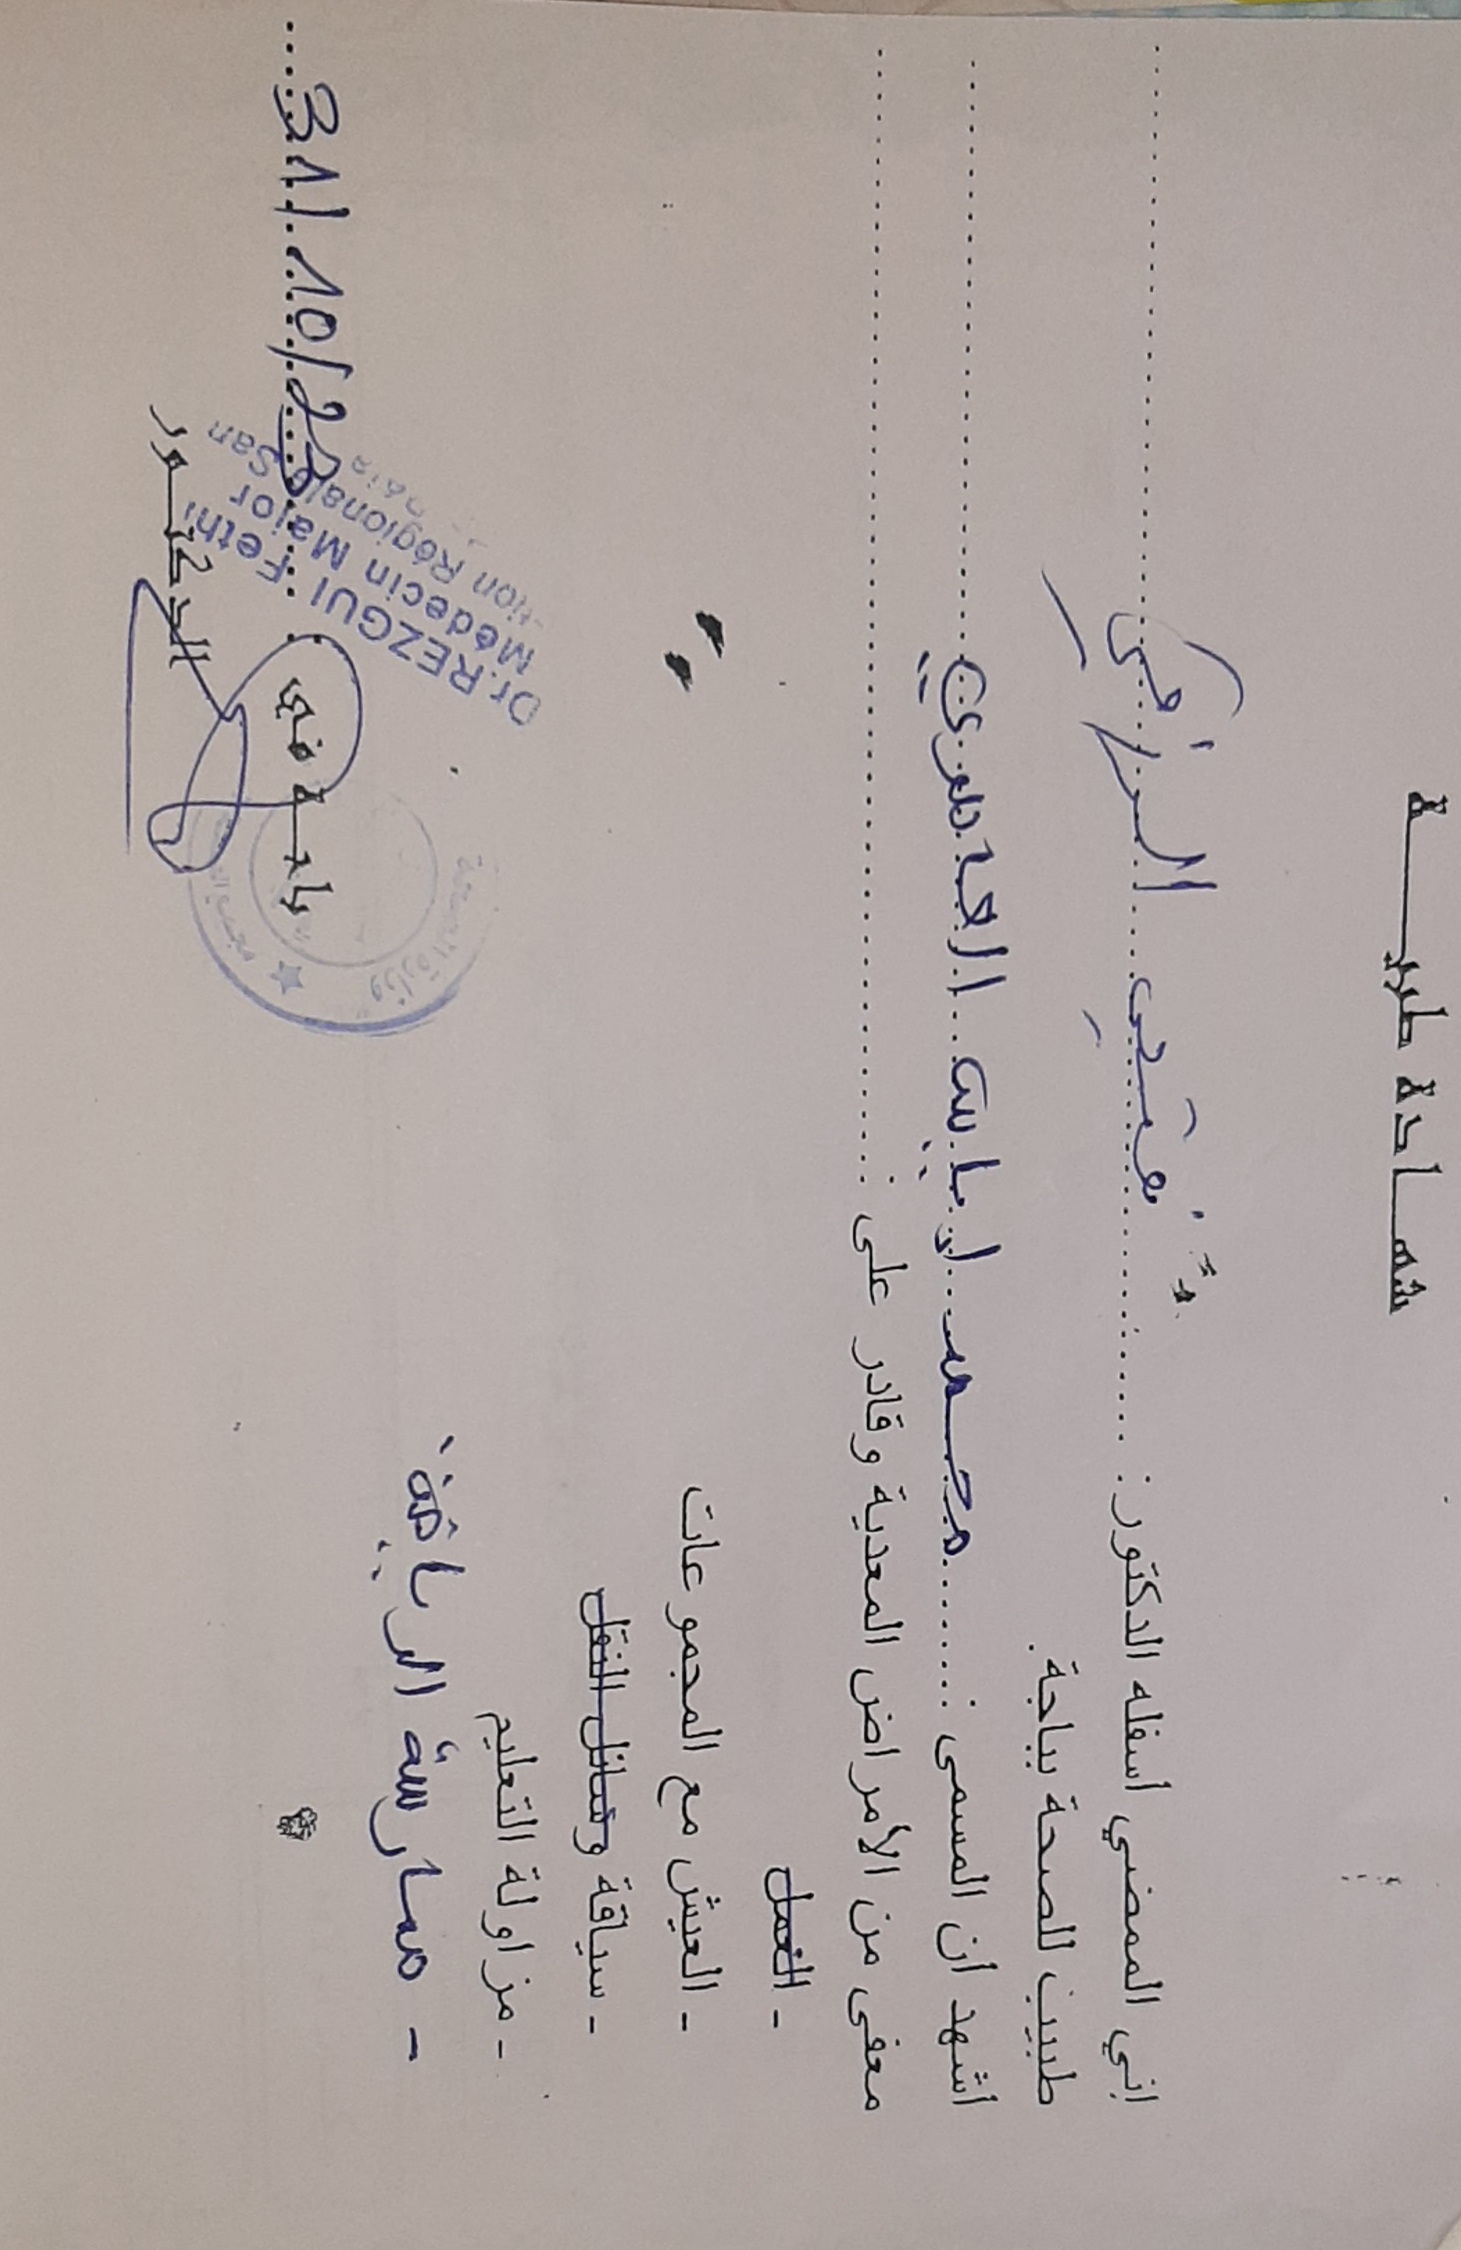 شهـــادة طبيـــــة
إني الممضي أسفله الدكتور : فتحي الرزقي
طبيب للصحة بباجة .
أشهد أن المسمى : محمد إياس
معفى من الأمراض المعدية وقادر على :
- العمل
- العيش مع المجموعات
- سياقة وسائل النقل
- مزاولة التعليم
- ممارسة الرياضة
باجـــة في 31/10/25
الدكتـــور
Dr.REZGUI Fethi
Médecin Major
Régionale
وزارة الصحة